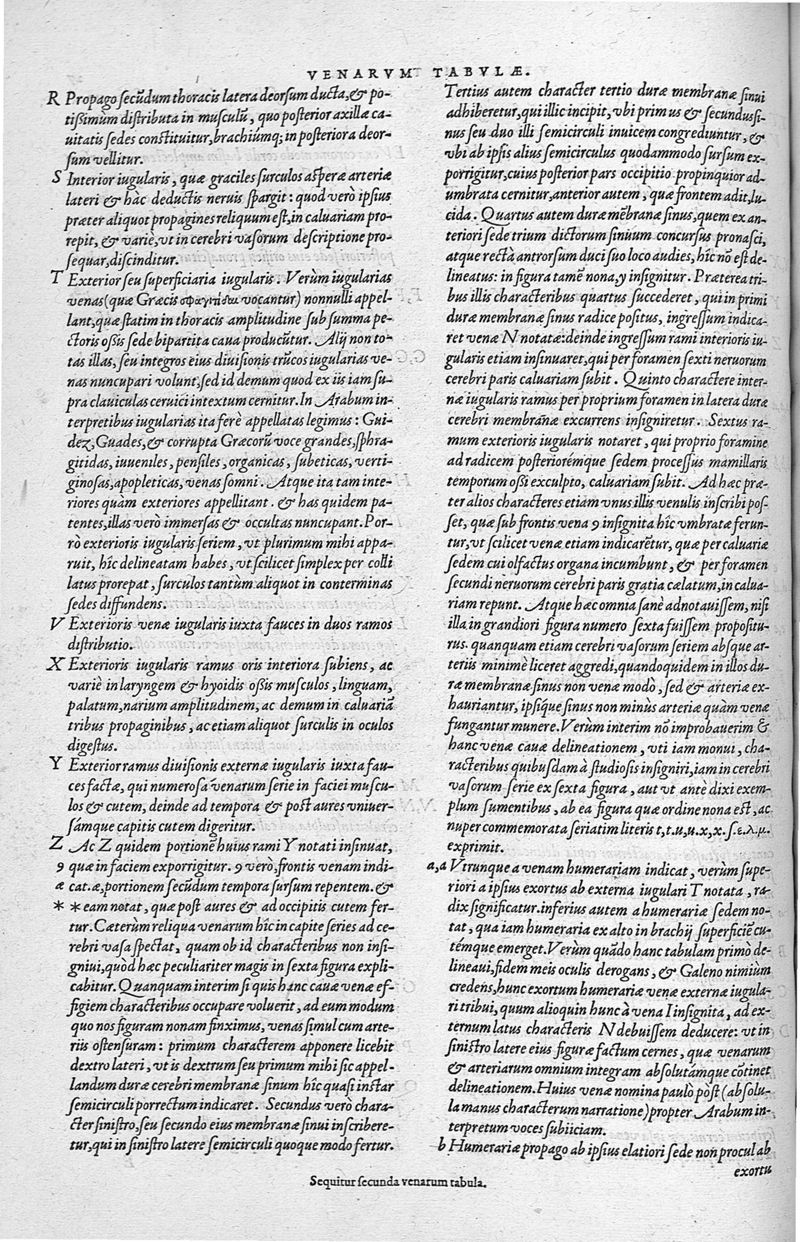 VENARVM TABVLÆ.
R Propago ſecũdum thoracis latera deorſum ducta, & po-
tiſſimum diſtributa in muſculũ, quo poſterior axillæ ca-
uitatis ſedes conſtituitur, brachiumq; in poſteriora deor-
ſum vellitur.
S Interior iugularis, quæ graciles ſurculos aſperæ arteriæ
lateri & hàc deductis neruis ſpargit: quod verò ipſius
præter aliquot propagines reliquum eſt, in caluariam pro-
repit, & variè, vt in cerebri vaſorum deſcriptione pro-
ſequar, diſcinditur.
T Exterior ſeu ſuperficiaria iugularis. Verùm iugularias
venas (quæ Græcis σφαγίτιδαι vocantur) nonnulli appel-
lant, quæ ſtatim in thoracis amplitudine ſub ſumma pe-
ctoris oſſis ſede bipartita caua producũtur. Alij non to-
tas illas, ſeu integros eius diuiſionis trũcos iugularias ve-
nas nuncupari volunt, ſed id demum quod ex iis iam ſu-
pra clauiculas ceruici intextum cernitur. In Arabum in-
terpretibus iugularias ita ferè appellatas legimus: Gui-
dez, Guades, & corrupta Græcorũ voce grandes, ſphra-
gitidas, iuueniles, penſiles, organicas, ſubeticas, verti-
ginoſas, apopleticas, venas ſomni. Atque ita tam inte-
riores quàm exteriores appellitant. & has quidem pa-
tentes, illas verò immerſas & occultas nuncupant. Por-
rò exterioris iugularis ſeriem, vt plurimum mihi appa-
ruit, hîc delineatam habes, vt ſcilicet ſimplex per colli
latus prorepat, ſurculos tantùm aliquot in conterminas
ſedes diffundens.
V Exterioris venæ iugularis iuxta fauces in duos ramos
diſtributio.
X Exterioris iugularis ramus oris interiora ſubiens, ac
variè in laryngem & hyoidis oſſis muſculos, linguam,
palatum, narium amplitudinem, ac demum in caluariã
tribus propaginibus, ac etiam aliquot ſurculis in oculos
digeſtus.
Y Exterior ramus diuiſionis externæ iugularis iuxta fau-
ces factæ, qui numeroſa venarum ſerie in faciei muſcu-
los & cutem, deinde ad tempora & poſt aures vniuer-
ſámque capitis cutem digeritur.
Z Ac Z quidem portionẽ huius rami Y notati inſinuat,
9 quæ in faciem exporrigitur. 9 verò, frontis venam indi-
æ cat. æ, portionem ſecũdum tempora ſurſum repentem. &
* * eam notat, quæ poſt aures & ad occipitis cutem fer-
tur. Cæterùm reliqua venarum hîc in capite ſeries ad ce-
rebri vaſa ſpectat, quam ob id characteribus non inſi-
gniui, quòd hæc peculiariter magis in ſexta figura expli-
cabitur. Quanquam interim ſi quis hanc cauæ venæ ef-
figiem characteribus occupare voluerit, ad eum modum
quo nos figuram nonam finximus, venas ſimul cum arte-
riis oſtenſuram: primum characterem apponere licebit
dextro lateri, vt is dextrum ſeu primum mihi ſic appel-
landum duræ cerebri membranæ ſinum hîc quaſi inſtar
ſemicirculi porrectum indicaret. Secundus verò chara-
cter ſiniſtro, ſeu ſecundo eius membranæ ſinui inſcribere-
tur, qui in ſiniſtro latere ſemicirculi quoque modo fertur.
Tertius autem character tertio duræ membranæ ſinui
adhiberetur, qui illic incipit, vbi primus & ſecundus ſi-
nus ſeu duo illi ſemicirculi inuicem congrediuntur, &
vbi ab ipſis alius ſemicirculus quodammodo ſurſum ex-
porrigitur, cuius poſterior pars occipitio propinquior ad-
umbrata cernitur, anterior autem, quæ frontem adit, lu-
cida. Quartus autem duræ mẽbranæ ſinus, quem ex an-
teriori ſede trium dictorum ſinuum concurſus pronaſci,
atque rectà antrorſum duci ſuo loco audies, hîc nõ eſt de-
lineatus: in figura tamẽ nona, y inſignitur. Præterea tri-
bus illis characteribus quartus ſuccederet, qui in primi
duræ membranæ ſinus radice poſitus, ingreſſum indica-
ret venæ N notatæ: deinde ingreſſum rami interioris iu-
gularis etiam inſinuaret, qui per foramen ſexti neruorum
cerebri paris caluariam ſubit. Quinto charactere inter-
næ iugularis ramus per proprium foramen in latera duræ
cerebri membranæ excurrens inſigniretur. Sextus ra-
mum exterioris iugularis notaret, qui proprio foramine
ad radicem poſteriorémque ſedem proceſſus mamillaris
temporum oſſi exculpto, caluariam ſubit. Ad hæc præ-
ter alios characteres etiam vnus illis venulis inſcribi poſ-
ſet, quæ ſub frontis vena 9 inſignita hîc vmbratæ ferun-
tur, vt ſcilicet venæ etiam indicarẽtur, quæ per caluariæ
ſedem cui olfactus organa incumbunt, & per foramen
ſecundi neruorum cerebri paris gratia cælatum, in calua-
riam repunt. Atque hæc omnia ſanè adnotauiſſem, niſi
illa in grandiori figura numero ſexta fuiſſem propoſitu-
rus. quanquam etiam cerebri vaſorum ſeriem abſque ar-
teriis minimè liceret aggredi, quandoquidem in illos du-
ræ membranæ ſinus non venæ modò, ſed & arteriæ ex-
hauriantur, ipſique ſinus non minùs arteriæ quàm venæ
fungantur munere. Verùm interim nõ improbauerim &
hanc venæ cauæ delineationem, vti iam monui, cha-
racteribus quibuſdam à ſtudioſis inſigniri, iam in cerebri
vaſorum ſerie ex ſexta figura, aut vt antè dixi exem-
plum ſumentibus, ab ea figura quæ ordine nona eſt, ac
nuper commemorata ſeriatim literis t,t.u,u.x,x.ſ.ε.λ.μ.
exprimit.
a,a Vtrunque a venam humerariam indicat, verùm ſupe-
riori a ipſius exortus ab externa iugulari T notata, ra-
dix ſignificatur. inferius autem a humerariæ ſedem no-
tat, qua iam humeraria ex alto in brachij ſuperficiẽ cu-
témque emerget. Verùm quãdo hanc tabulam primò de-
lineaui, fidem meis oculis derogans, & Galeno nimium
credens, hunc exortum humerariæ venæ externæ iugula-
ri tribui, quum alioquin hunc à vena I inſignita, ad ex-
ternum latus characteris N debuiſſem deducere: vt in
ſiniſtro latere eius figuræ factum cernes, quæ venarum
& arteriarum omnium integram abſolutámque cõtinet
delineationem. Huius venæ nomina paulò pòſt (abſolu-
la manus characterum narratione) propter Arabum in-
terpretum voces ſubiiciam.
b Humerariæ propago ab ipſius elatiori ſede non procul ab
exortu
Sequitur ſecunda venarum tabula.